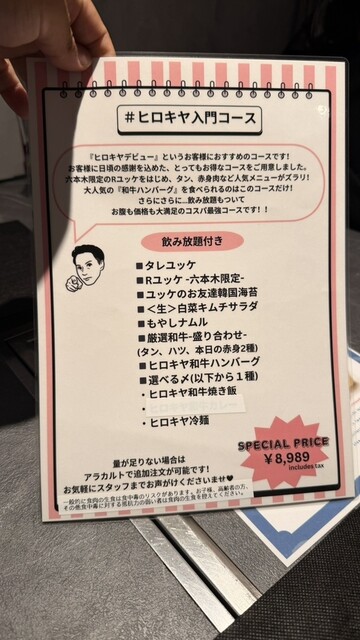 #ヒロキヤ入門コース
『ヒロキヤデビュー』というお客様におすすめのコースです!
お客様に日頃の感謝を込めた、とってもお得なコースをご用意しました。
六本木限定のRユッケをはじめ、タン、赤身肉など人気メニューがズラリ!
大人気の『和牛ハンバーグ』を食べられるのはこのコースだけ!
さらにさらに...飲み放題もついて
お腹も価格も大満足のコスパ最強コースです!!
飲み放題付き
■タレユッケ
■Rユッケ -六本木限定-
■ユッケのお友達韓国海苔
■<生>白菜キムチサラダ
■もやしナムル
■厳選和牛-盛り合わせ-
(タン、ハツ、本日の赤身2種)
■ヒロキヤ和牛ハンバーグ
■選べる〆(以下から1種)
・ヒロキヤ和牛焼き飯
・ヒロキヤ冷麺
SPECIAL PRICE
¥8,989
includes tax
量が足りない場合は
アラカルトで追加注文が可能です!
お気軽にスタッフまでお声がけくださいませ♥
一般的に食肉の生食は食中毒のリスクがあります。お子様、高齢者の方、
その他食中毒に対する抵抗力の弱い者は食肉の生食を控えてください。